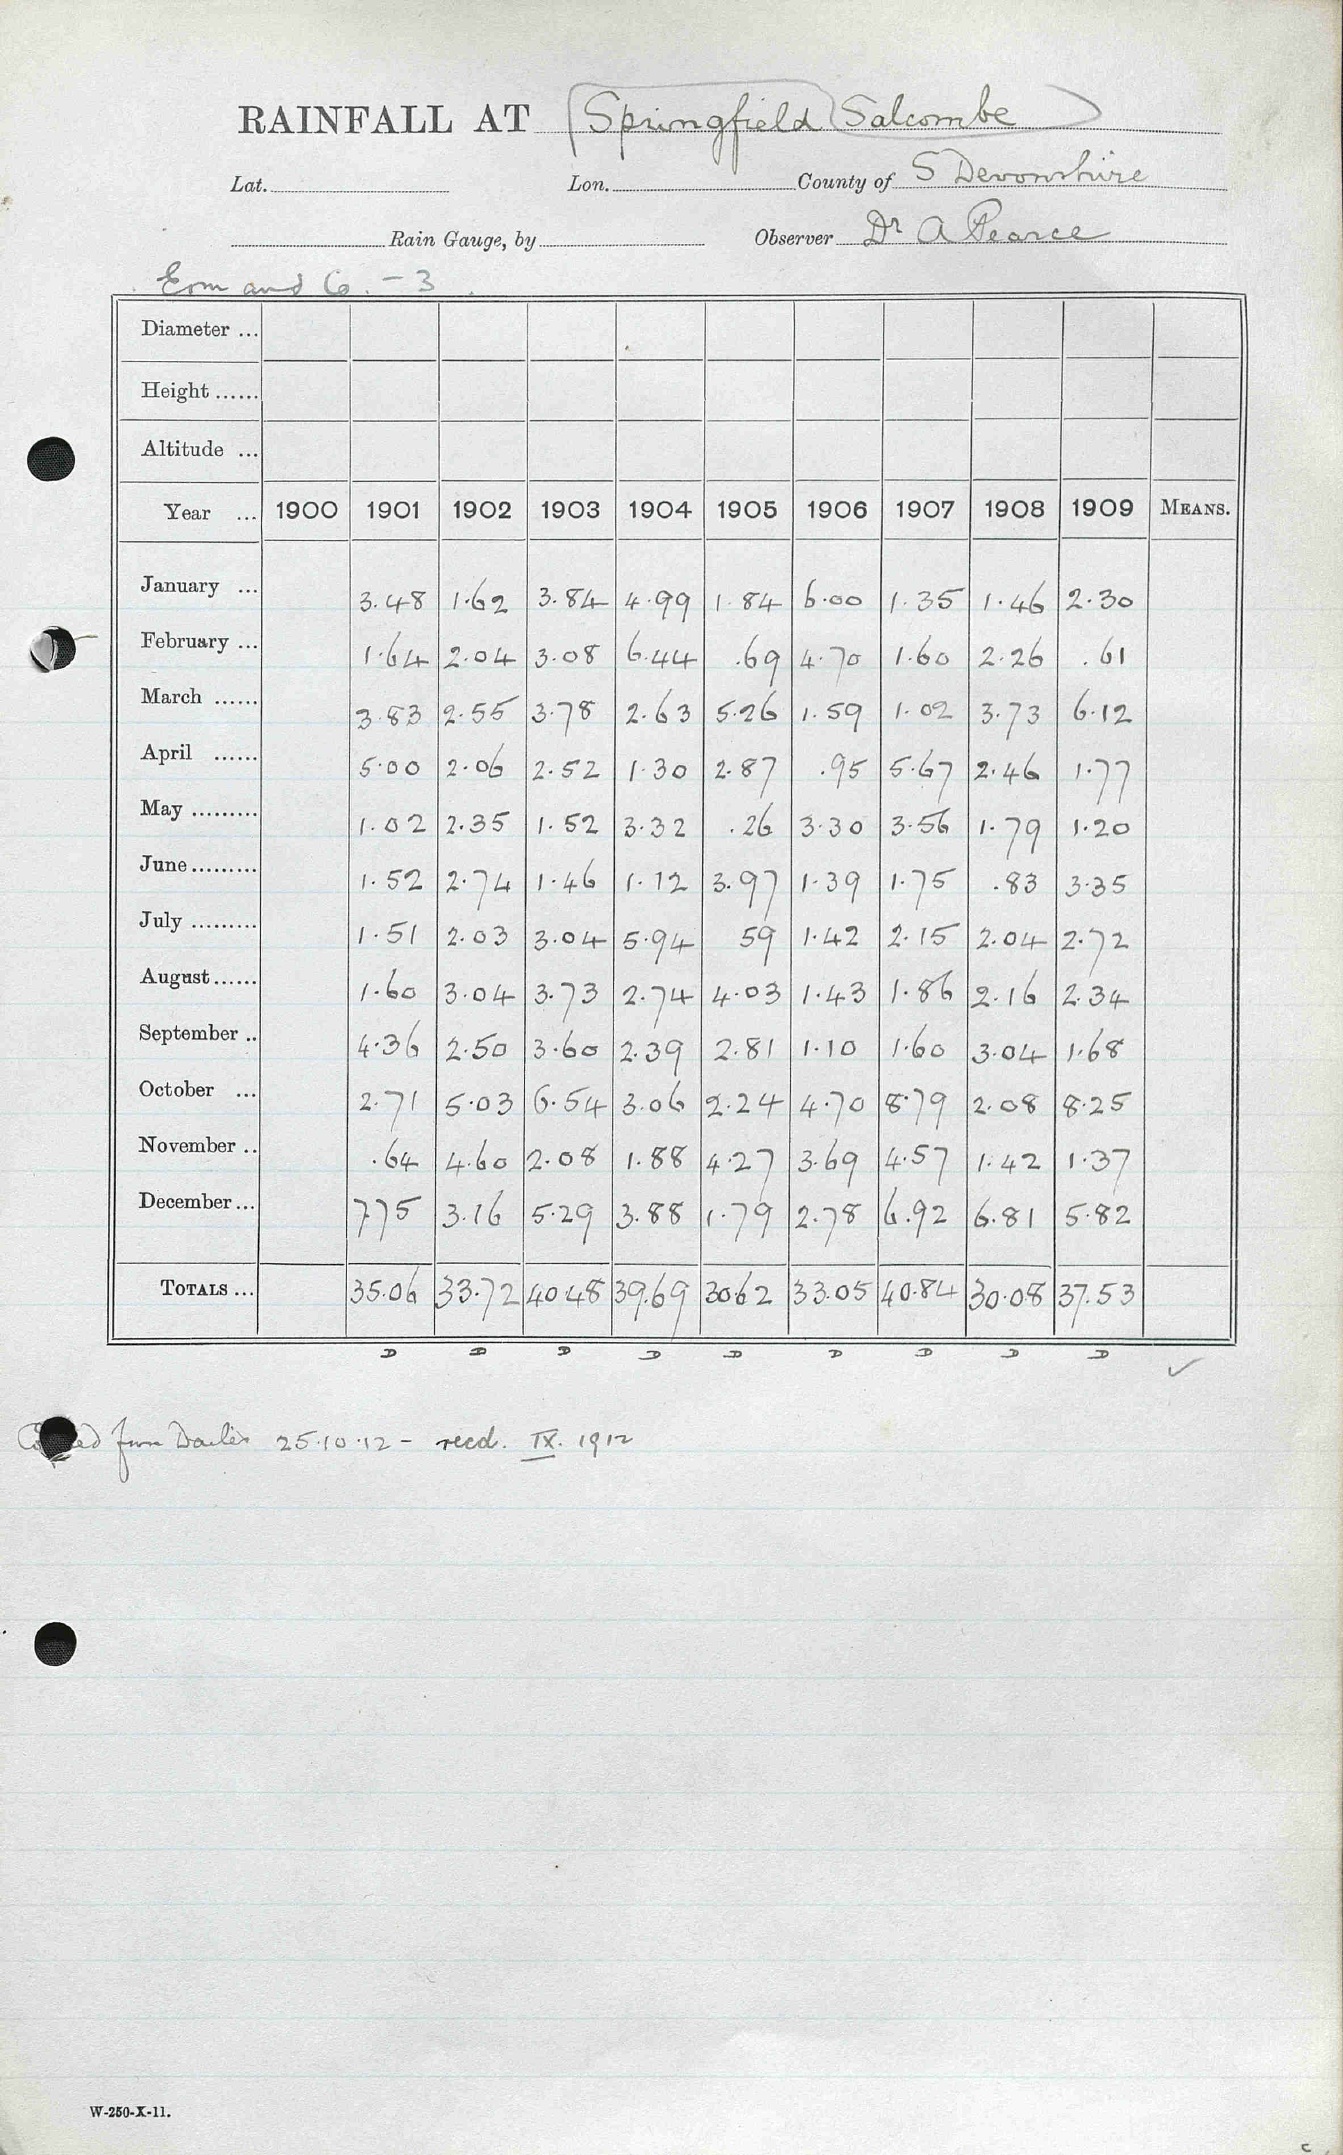 RAINFALL AT Springfield Salcombe
Lat. Lon. County of S Devonshire
Rain Gauge, by Observer Dr A Pearce
Erm and Co. - 3.
Diameter ...
Height ......
Altitude ...
Year ... 1900 1901 1902 1903 1904 1905 1906 1907 1908 1909 MEANS.
January ... 3.48 1.62 3.84 4.99 1.84 6.00 1.35 1.46 2.30
February ... 1.64 2.04 3.08 6.44 .69 4.70 1.60 2.26 .61
March ...... 3.83 2.55 3.78 2.63 5.26 1.59 1.02 3.73 6.12
April ...... 5.00 2.06 2.52 1.30 2.87 .95 5.67 2.46 1.77
May ......... 1.02 2.35 1.52 3.32 .26 3.30 3.56 1.79 1.20
June ......... 1.52 2.74 1.46 1.12 3.97 1.39 1.75 .83 3.35
July ......... 1.51 2.03 3.04 5.94 59 1.42 2.15 2.04 2.72
August ...... 1.60 3.04 3.73 2.74 4.03 1.43 1.86 2.16 2.34
September .. 4.36 2.50 3.60 2.39 2.81 1.10 1.60 3.04 1.68
October ... 2.71 5.03 6.54 3.06 2.24 4.70 8.79 2.08 8.25
November .. .64 4.60 2.08 1.88 4.27 3.69 4.57 1.42 1.37
December ... 7.75 3.16 5.29 3.88 1.79 2.78 6.92 6.81 5.82
TOTALS ... 35.06 33.72 40 48 39.69 30 62 33.05 40.84 30.08 37.53
D D D D D D D D D
from Dailies 25.10.12 - recd. IX. 1912
W-250-X-11.
C